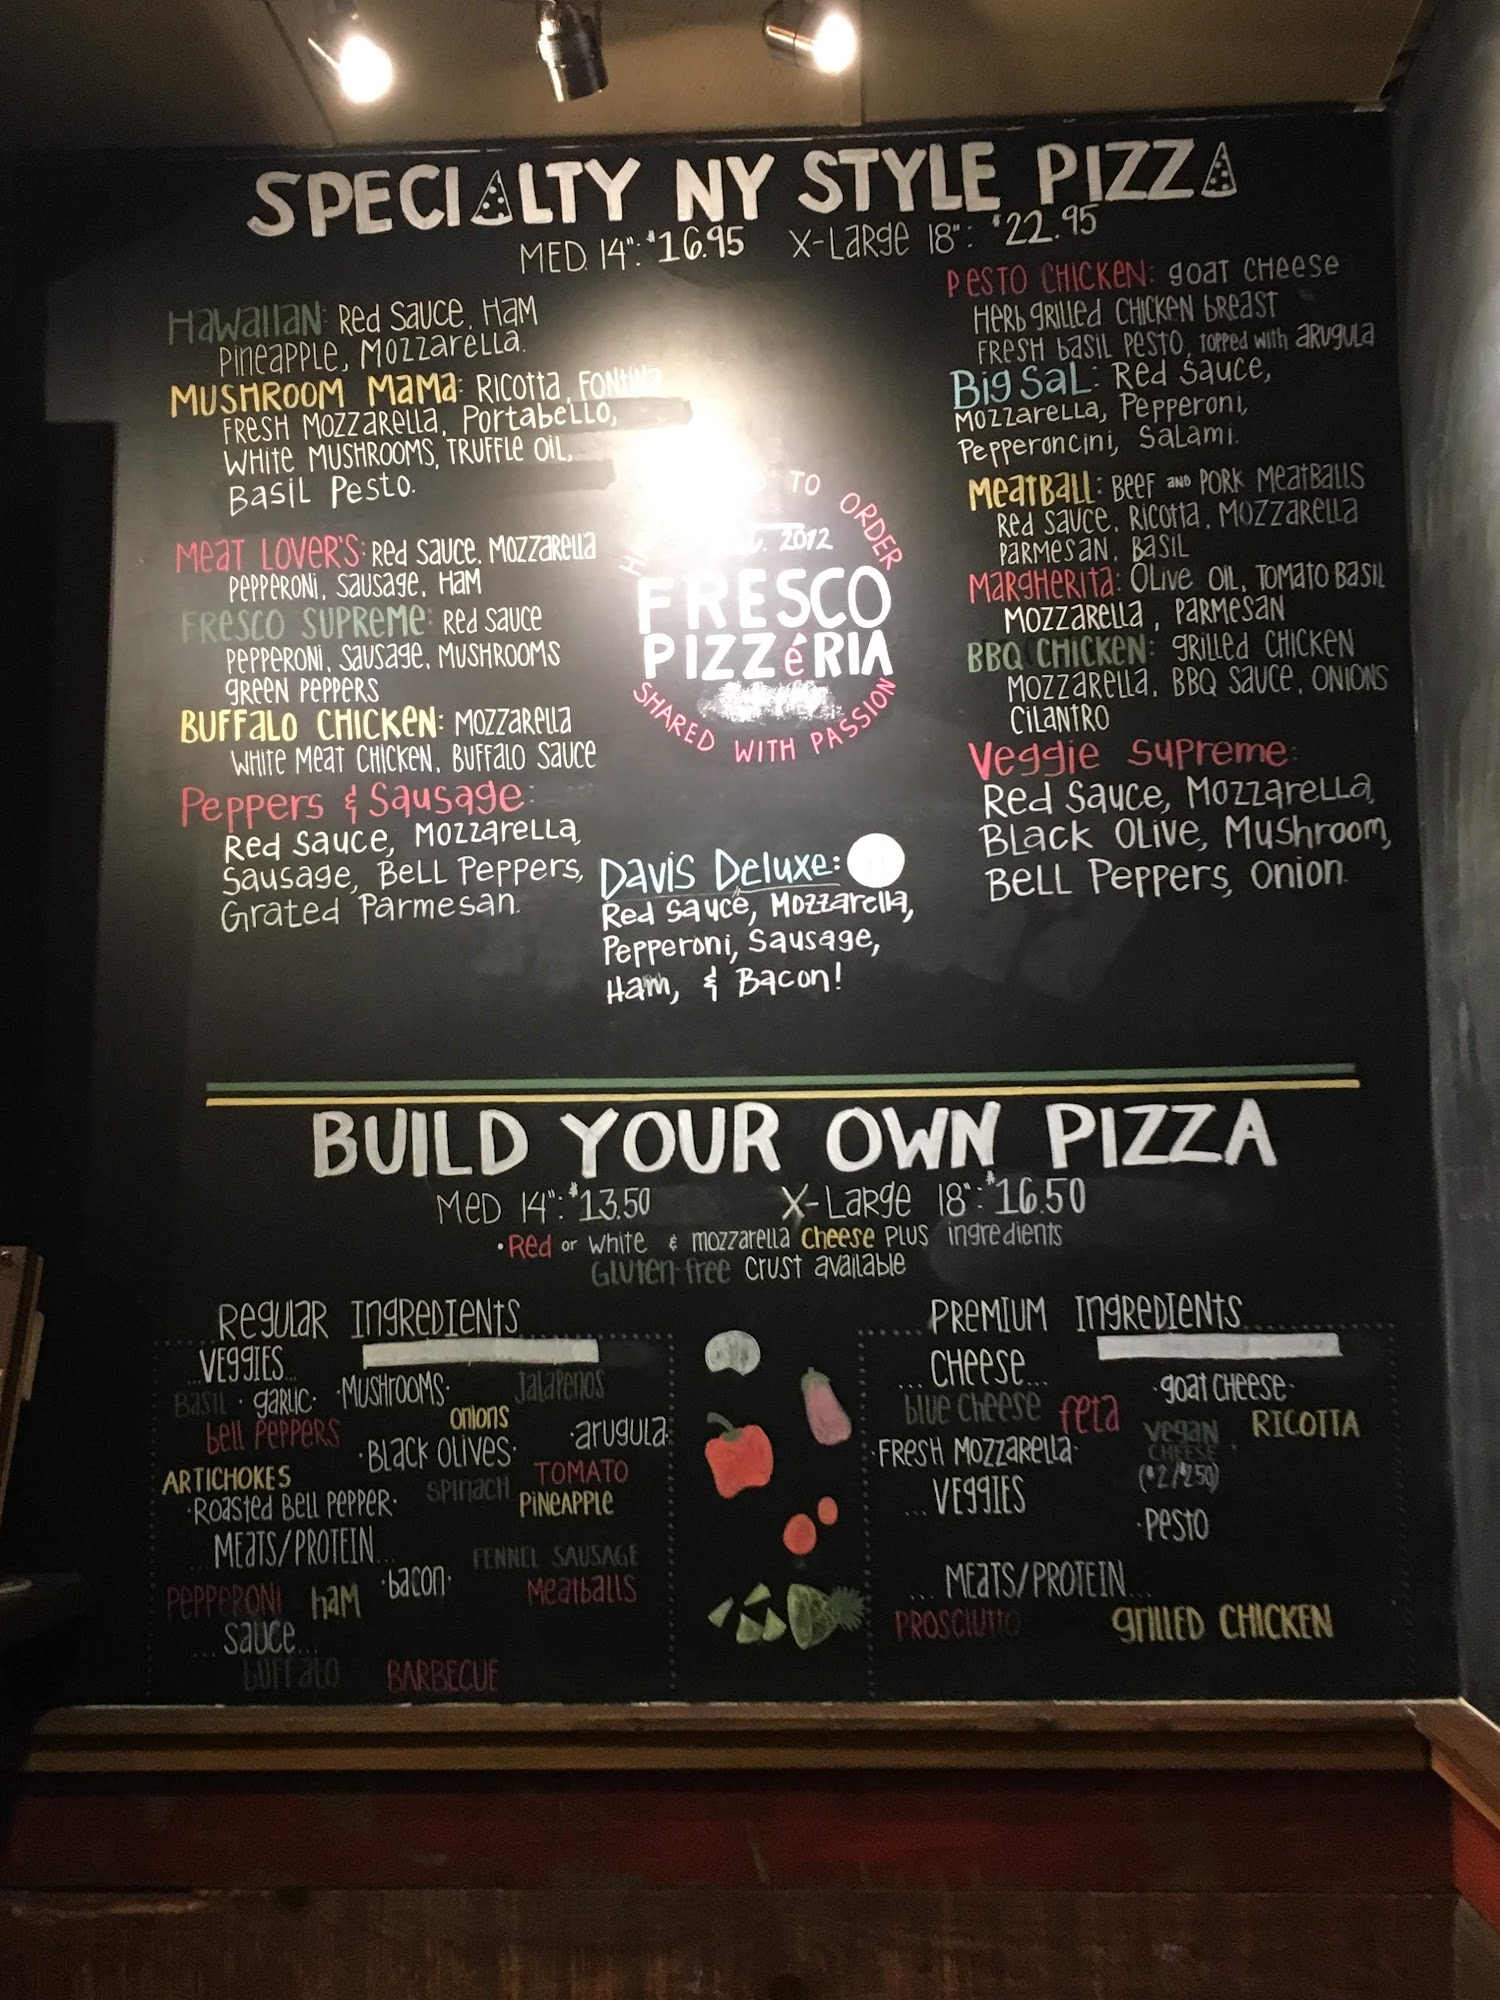 SPECIALTY NY STYLE PIZZA
MED. 14": $16.95 X-LARGE 18": $22.95
HAWAIIAN: RED SAUCE, HAM
PINEAPPLE, MOZZARELLA.
MUSHROOM MAMA: RICOTTA, FONTINA
FRESH MOZZARELLA, PORTABELLO,
WHITE MUSHROOMS, TRUFFLE OIL,
BASIL PESTO.
MEAT LOVER'S: RED SAUCE, MOZZARELLA
PEPPERONI, SAUSAGE, HAM
FRESCO SUPREME: RED SAUCE
PEPPERONI, SAUSAGE, MUSHROOMS
GREEN PEPPERS
BUFFALO CHICKEN: MOZZARELLA
WHITE MEAT CHICKEN, BUFFALO SAUCE
Peppers & Sausage:
Red Sauce, Mozzarella,
Sausage, Bell Peppers,
Grated Parmesan.
TO ORDER
2012
FRESCO
PIZZéRIA
SHARED WITH PASSION
Davis Deluxe:
Red Sauce, Mozzarella,
Pepperoni, Sausage,
Ham, & Bacon!
PESTO CHICKEN: GOAT CHEESE
HERB GRILLED CHICKEN BREAST
FRESH BASIL PESTO, TOPPED WITH ARUGULA
Big Sal: Red Sauce,
Mozzarella, Pepperoni,
Pepperoncini, Salami.
MEATBALL: BEEF AND PORK MEATBALLS
RED SAUCE, RICOTTA, MOZZARELLA
PARMESAN, BASIL
MARGHERITA: OLIVE OIL, TOMATO BASIL
MOZZARELLA, PARMESAN
BBQ CHICKEN: GRILLED CHICKEN
MOZZARELLA, BBQ SAUCE, ONIONS
CILANTRO
Veggie Supreme:
Red Sauce, Mozzarella,
Black Olive, Mushroom,
Bell Peppers, Onion.
BUILD YOUR OWN PIZZA
MED 14": $13.50 X-LARGE 18": $16.50
• Red or White & mozzarella Cheese PLUS ingredients
Gluten-free crust available
REGULAR INGREDIENTS
...VEGGIES...
Basil · garlic · MUSHROOMS · Jalapenos
bell PEPPERS onions
· BLACK OLIVES · · arugula
ARTICHOKES spinach TOMATO
· Roasted Bell Pepper · PINEAPPLE
...MEATS/PROTEIN...
FENNEL SAUSAGE
PEPPERONI HAM · bacon · Meatballs
...SAUCE...
buffalo BARBECUE
PREMIUM INGREDIENTS
...CHEESE...
· goat cheese ·
blue cheese feta vegan CHEESE · RICOTTA
· FRESH MOZZARELLA · ($2/$2.50)
...VEGGIES
· Pesto
...MEATS/PROTEIN...
PROSCIUTTO GRILLED CHICKEN